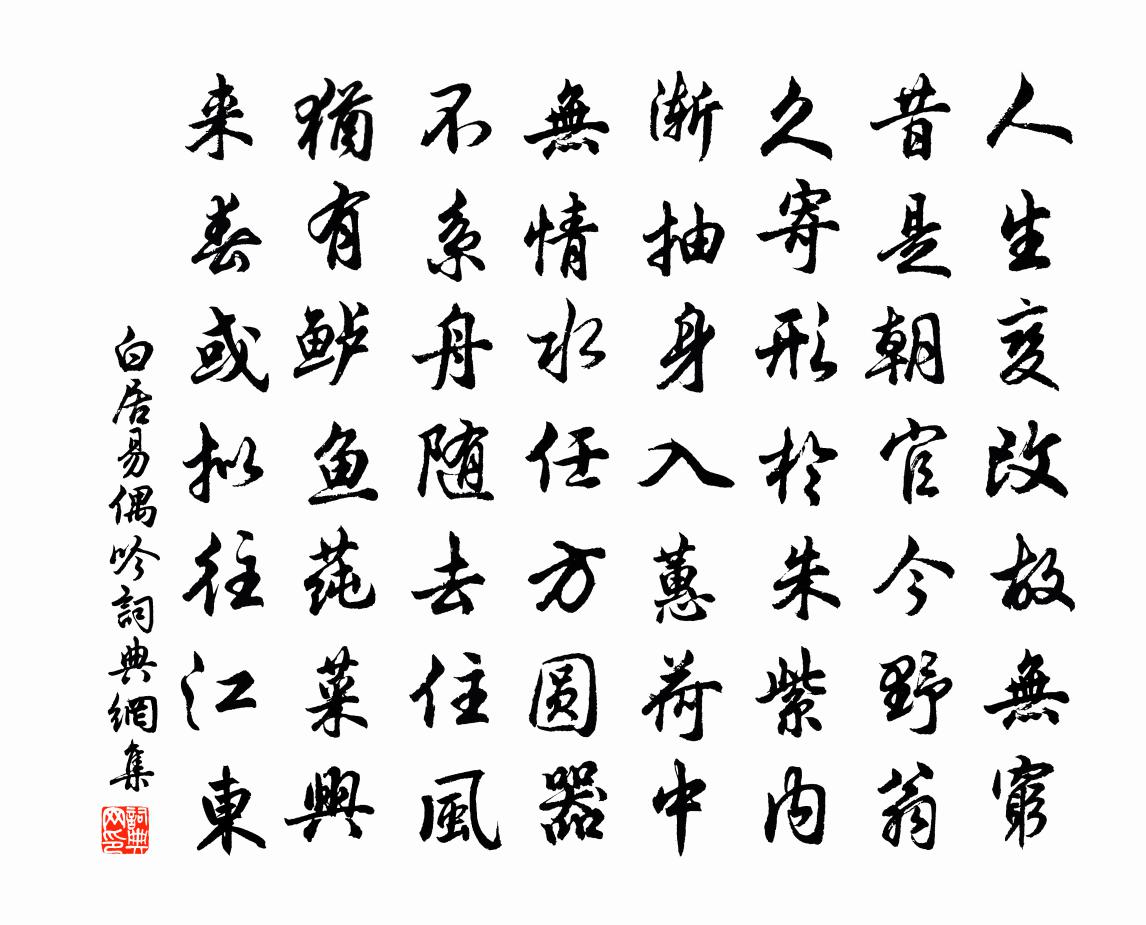 人生变改故無窮
昔是朝官今野翁
久寄形於朱紫内
渐抽身入蕙荷中
無情水任方圆器
不系舟随去住風
猶有鲈鱼莼菜興
来春或拟往江東
白居易偶吟詞典網集
詞典网印